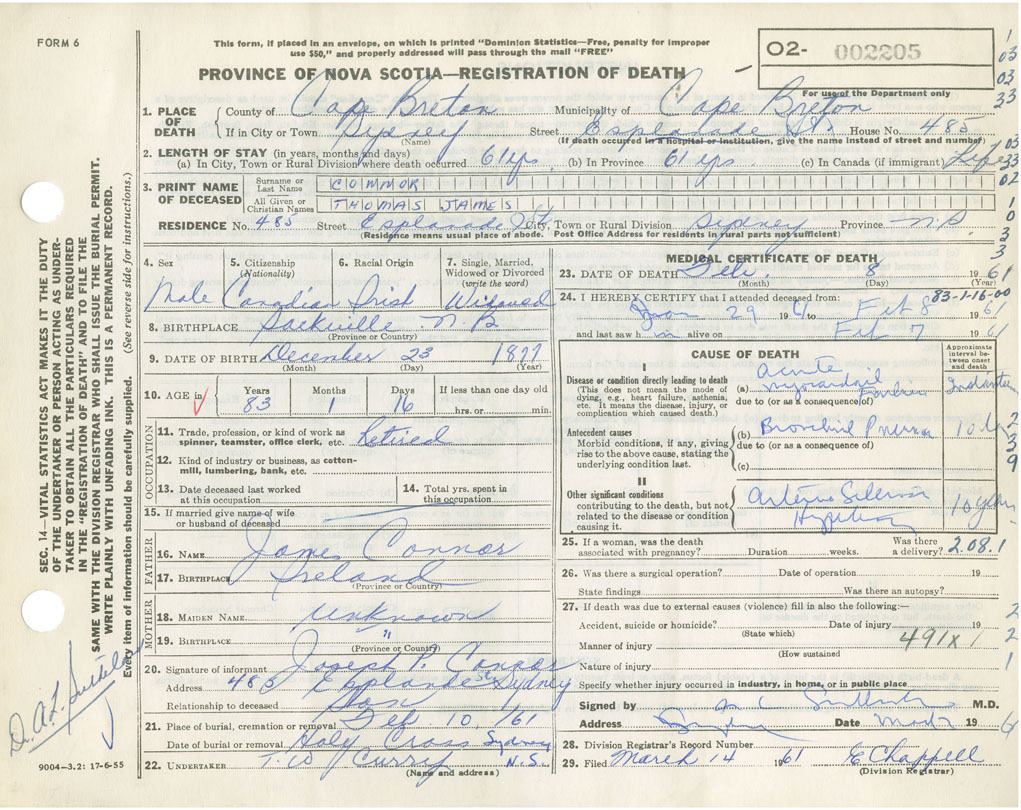 FORM 6
This form, if placed in an envelope, on which is printed "Dominion Statistics—Free, penalty for improper
use $50," and properly addressed will pass through the mail "FREE"
O2- 002205
For use of the Department only
PROVINCE OF NOVA SCOTIA—REGISTRATION OF DEATH
1. PLACE OF DEATH
County of Cape Breton Municipality of Cape Breton
If in City or Town Sydney Street Esplanade St. House No. 485
(Name) (If death occurred in a hospital or institution, give the name instead of street and number)
2. LENGTH OF STAY (in years, months and days)
(a) In City, Town or Rural Division where death occurred 61 yrs (b) In Province 61 yrs (c) In Canada (if immigrant) Life
3. PRINT NAME OF DECEASED
Surname or Last Name CONNOR
All Given or Christian Names THOMAS JAMES
RESIDENCE No. 485 Street Esplanade St City, Town or Rural Division Sydney Province N.S.
(Residence means usual place of abode. Post Office Address for residents in rural parts not sufficient)
4. Sex 5. Citizenship (Nationality) 6. Racial Origin 7. Single, Married, Widowed or Divorced (write the word)
Male Canadian Irish Widowed
8. BIRTHPLACE Sackville N.B
(Province or Country)
9. DATE OF BIRTH December 23 1877
(Month) (Day) (Year)
10. AGE in Years Months Days If less than one day old
83 1 16 hrs. or min.
OCCUPATION
11. Trade, profession or kind of work as
spinner, teamster, office clerk, etc. Retired
12. Kind of industry or business, as cotton-
mill, lumbering, bank, etc.
13. Date deceased last worked at this occupation 14. Total yrs. spent in this occupation
15. If married give name of wife
or husband of deceased
FATHER
16. NAME James Connor
17. BIRTHPLACE Ireland
(Province or Country)
MOTHER
18. MAIDEN NAME Unknown
19. BIRTHPLACE "
(Province or Country)
20. Signature of informant Joseph P. Connor
Address 485 Esplanade St Sydney
Relationship to deceased Son
21. Place of burial, cremation or removal Feb 10 /61
Date of burial or removal Holy Cross Sydney
22. UNDERTAKER T. W Curry N.S.
(Name and address)
MEDICAL CERTIFICATE OF DEATH
23. DATE OF DEATH Feb. 8 1961
(Month) (Day) (Year)
83-1-16-00
24. I HEREBY CERTIFY that I attended deceased from:
Jan 29 1961 Feb 8 1961
and last saw him alive on Feb 7 1961
CAUSE OF DEATH
Approximate interval between onset and death
I
Disease or condition directly leading to death
(This does not mean the mode of
dying, e.g., heart failure, asthenia,
etc. It means the disease, injury, or
complication which caused death.)
(a) Acute myocardial
due to (or as a consequence of)
Antecedent causes
Morbid conditions, if any, giving
rise to the above cause, stating the
underlying condition last.
(b) Bronchial
due to (or as a consequence of)
(c)
II
Other significant conditions
contributing to the death, but not
related to the disease or condition
causing it.
10 years
25. If a woman, was the death
associated with pregnancy? Duration weeks. Was there a delivery? 2.08.1
26. Was there a surgical operation? Date of operation 19
State findings Was there an autopsy?
27. If death was due to external causes (violence) fill in also the following:—
Accident, suicide or homicide? Date of injury 19
(State which)
Manner of injury 491X1
(How sustained
Nature of injury
Specify whether injury occurred in industry, in home, or in public place
Signed by M.D.
Address Date 19
28. Division Registrar's Record Number
29. Filed March 14 1961 E Chappell
(Division Registrar)
SEC. 14—VITAL STATISTICS ACT MAKES IT THE DUTY
OF THE UNDERTAKER OR PERSON ACTING AS UNDER-
TAKER TO OBTAIN ALL THE PARTICULARS REQUIRED
IN THE "REGISTRATION OF DEATH" AND TO FILE THE
SAME WITH THE DIVISION REGISTRAR WHO SHALL ISSUE THE BURIAL PERMIT.
WRITE PLAINLY WITH UNFADING INK. THIS IS A PERMANENT RECORD.
Every item of information should be carefully supplied. (See reverse side for instructions.)
9004-3.2: 17-6-55